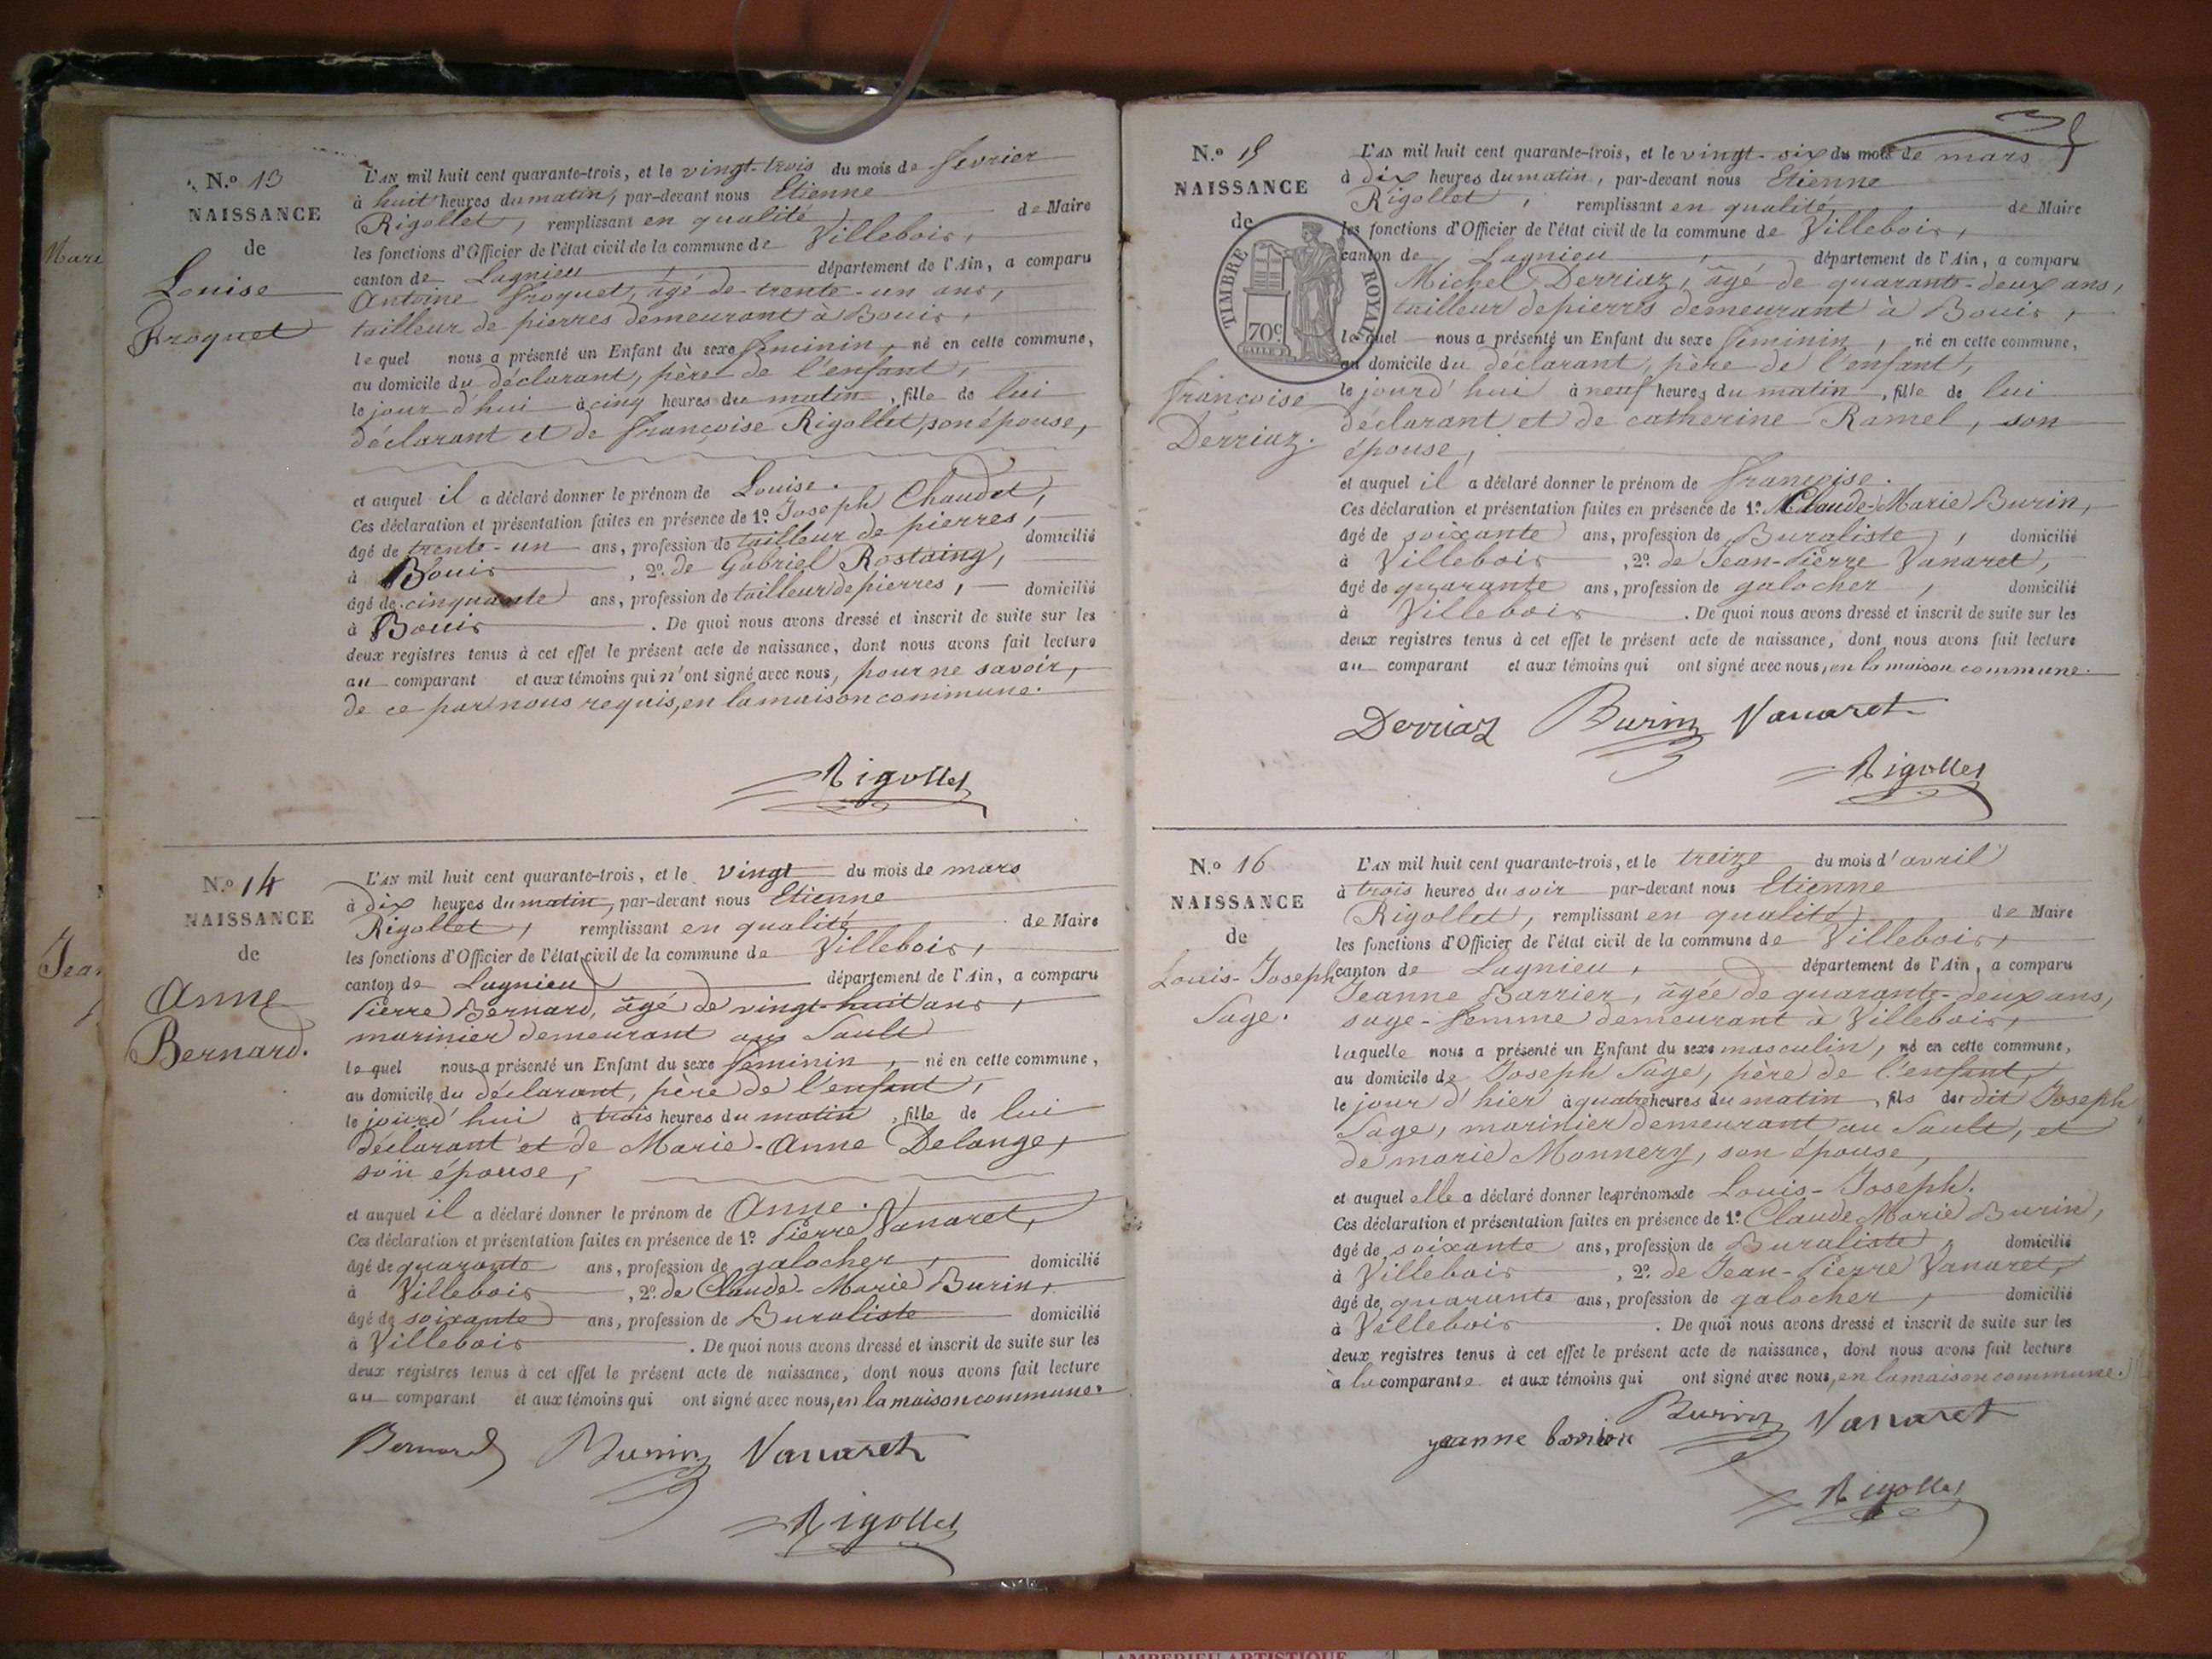 N.º 13
NAISSANCE
de
Louise
Froquet
L'AN mil huit cent quarante-trois, et le vingt-trois du mois de fevrier
à huit heures du matin, par-devant nous Etienne
Rigollet, remplissant en qualité de Maire
les fonctions d'Officier de l'état civil de la commune de Villebois,
canton de Lagnieu département de l'Ain, a comparu
Antoine Froquet, âgé de trente-un ans,
tailleur de pierres demeurant à Bouis,
lequel nous a présenté un Enfant du sexe féminin, né en cette commune,
au domicile du déclarant, père de l'enfant,
le jour d'hui à cinq heures du matin, fille de lui
déclarant et de Françoise Rigollet, son épouse,
et auquel il a déclaré donner le prénom de Louise.
Ces déclaration et présentation faites en présence de 1º Joseph Chaudet,
âgé de trente-un ans, profession de tailleur de pierres, domicilié
à Bouis, 2º de Gabriel Rostaing,
âgé de cinquante ans, profession de tailleur de pierres, domicilié
à Bouis. De quoi nous avons dressé et inscrit de suite sur les
deux registres tenus à cet effet le présent acte de naissance, dont nous avons fait lecture
au comparant et aux témoins qui n'ont signé avec nous, pour ne savoir,
de ce par nous requis, en la maison commune.
Rigollet
N.º 14
NAISSANCE
de
Anne
Bernard.
L'AN mil huit cent quarante-trois, et le vingt du mois de mars
à dix heures du matin, par-devant nous Etienne
Rigollet, remplissant en qualité de Maire
les fonctions d'Officier de l'état civil de la commune de Villebois,
canton de Lagnieu département de l'Ain, a comparu
Pierre Bernard, âgé de vingt-huit ans,
marinier demeurant au Sault
lequel nous a présenté un Enfant du sexe féminin, né en cette commune,
au domicile du déclarant, père de l'enfant,
le jourd'hui à trois heures du matin, fille de lui
déclarant et de Marie-Anne Delange,
son épouse,
et auquel il a déclaré donner le prénom de Anne.
Ces déclaration et présentation faites en présence de 1º Pierre Vanaret,
âgé de quarante ans, profession de galocher, domicilié
à Villebois, 2º de Claude-Marie Burin,
âgé de soixante ans, profession de Buraliste domicilié
à Villebois. De quoi nous avons dressé et inscrit de suite sur les
deux registres tenus à cet effet le présent acte de naissance, dont nous avons fait lecture
au comparant et aux témoins qui ont signé avec nous, en la maison commune.
Bernard Burin Vanaret
Rigollet
N.º 15
NAISSANCE
de
TIMBRE ROYAL
70c
Françoise
Derriaz.
L'AN mil huit cent quarante-trois, et le vingt-six du mois de mars
à dix heures du matin, par-devant nous Etienne
Rigollet, remplissant en qualité de Maire
les fonctions d'Officier de l'état civil de la commune de Villebois,
canton de Lagnieu, département de l'Ain, a comparu
Michel Derriaz, âgé de quarante-deux ans,
tailleur de pierres demeurant à Bouis,
lequel nous a présenté un Enfant du sexe féminin, né en cette commune,
au domicile du déclarant, père de l'enfant,
le jourd'hui à neuf heures du matin, fille de lui
déclarant et de catherine Ramel, son
épouse,
et auquel il a déclaré donner le prénom de françoise.
Ces déclaration et présentation faites en présence de 1º Claude-Marie Burin,
âgé de soixante ans, profession de Buraliste, domicilié
à Villebois, 2º de Jean-Pierre Vanaret,
âgé de quarante ans, profession de galocher, domicilié
à Villebois. De quoi nous avons dressé et inscrit de suite sur les
deux registres tenus à cet effet le présent acte de naissance, dont nous avons fait lecture
au comparant et aux témoins qui ont signé avec nous, en la maison commune.
Derriaz Burin Vanaret
Rigollet
N.º 16
NAISSANCE
de
Louis-Joseph
Sage.
L'AN mil huit cent quarante-trois, et le treize du mois d'avril
à trois heures du soir par-devant nous Etienne
Rigollet, remplissant en qualité de Maire
les fonctions d'Officier de l'état civil de la commune de Villebois,
canton de Lagnieu, département de l'Ain, a comparu
Jeanne Barrier, âgée de quarante-deux ans,
sage-femme demeurant à Villebois,
laquelle nous a présenté un Enfant du sexe masculin, né en cette commune,
au domicile de Joseph Sage, père de l'enfant,
le jour d'hier à quatre heures du matin, fils du dit Joseph
Sage, marinier demeurant au Sault, et
de marie Monnery, son épouse,
et auquel elle a déclaré donner les prénoms de Louis-Joseph.
Ces déclaration et présentation faites en présence de 1º Claude Marie Burin,
âgé de soixante ans, profession de Buraliste, domicilié
à Villebois, 2º de Jean-Pierre Vanaret,
âgé de quarante ans, profession de galocher, domicilié
à Villebois. De quoi nous avons dressé et inscrit de suite sur les
deux registres tenus à cet effet le présent acte de naissance, dont nous avons fait lecture
à la comparante et aux témoins qui ont signé avec nous, en la maison commune.
jeanne barrier Burin Vanaret
Rigollet
AMBERIEU ARTISTIQUE